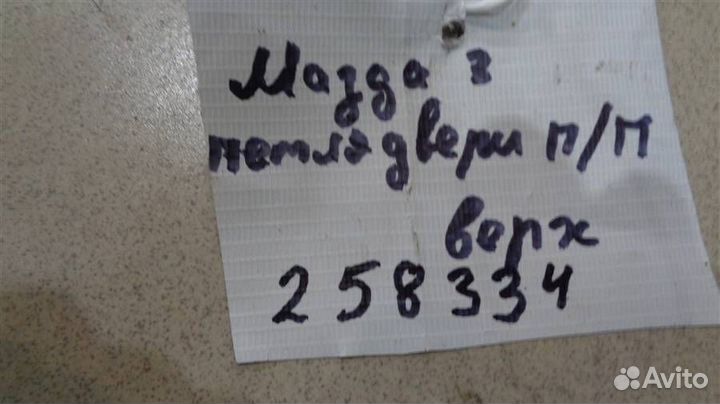 Мазда 3
петля двери п/п
верх
258334
Avito